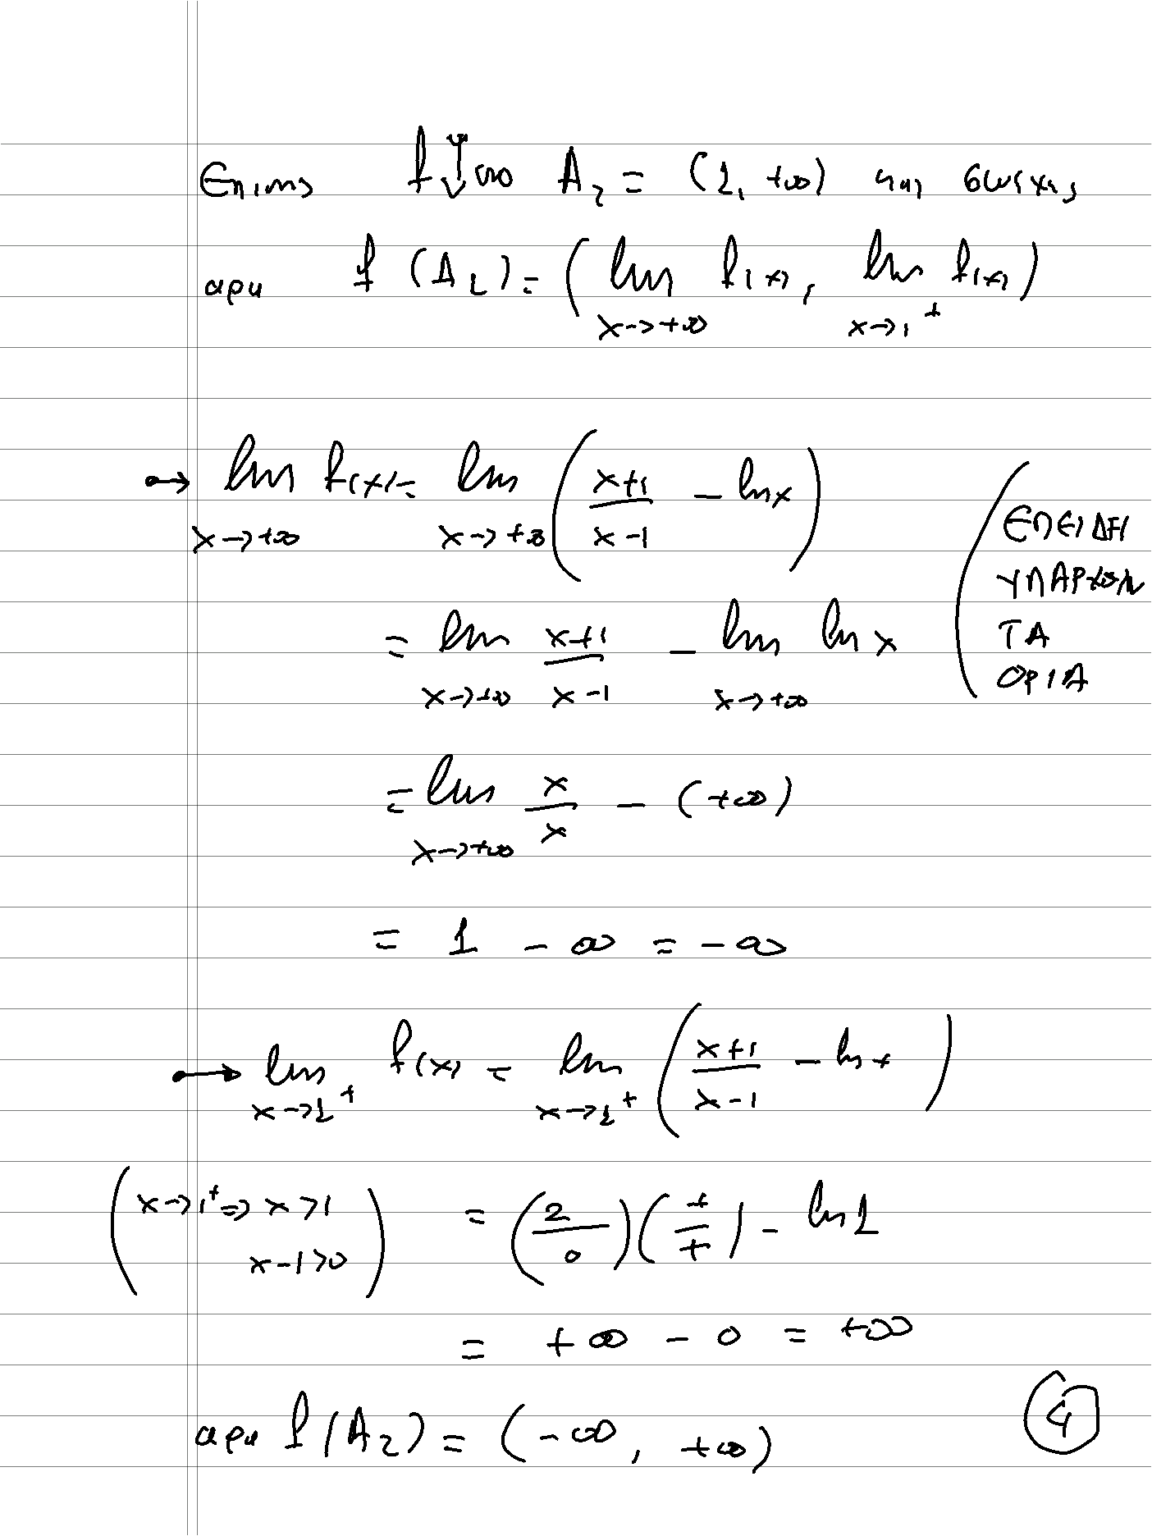 Επισης f ↓ στο A₂ = (1, +∞) και συνεχης
αρα f (A₂) = ( lim f(x), lim f(x) )
x→+∞ x→1⁺
→ lim f(x) = lim ( x+1 / x-1 - lnx )
x→+∞ x→+∞
= lim x+1 / x-1 - lim ln x
x→+∞ x→+∞
( ΕΠΕΙΔΗ
ΥΠΑΡΧΟΥΝ
ΤΑ
ΟΡΙΑ
= lim x / x - (+∞)
x→+∞
= 1 - ∞ = -∞
→ lim f(x) = lim ( x+1 / x-1 - ln x )
x→1⁺ x→1⁺
( x→1⁺ ⇒ x>1
x-1>0 )
= ( 2 / 0 ) ( + / + ) - ln 1
= +∞ - 0 = +∞
αρα f(A₂) = (-∞, +∞)
4